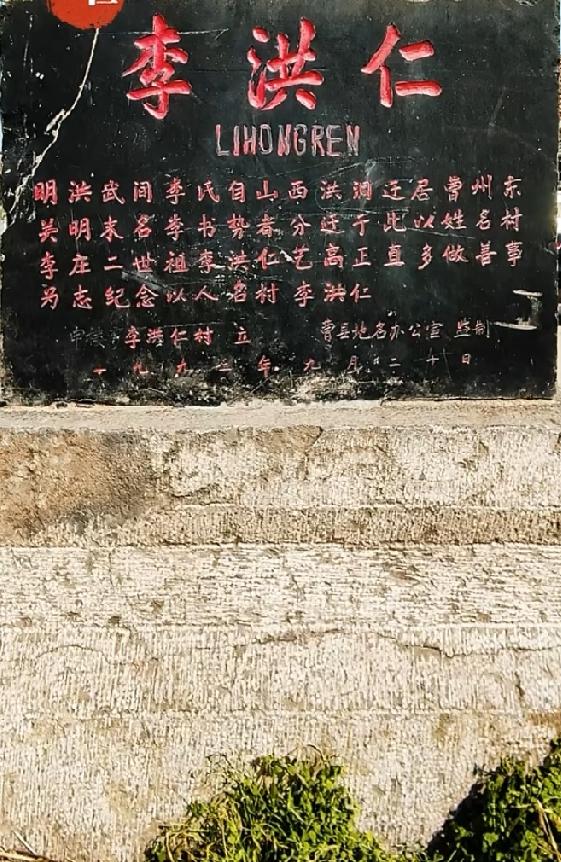 李洪仁
LIHONGREN
明洪武间李氏自山西洪洞迁居曹州东
吴明末名李书势者分迁于此以姓名村
李庄二世祖李洪仁艺高正直多做善事
为志纪念以人名村李洪仁
李洪仁村 立 曹县地名办公室 监制
一九九二年九月二十日